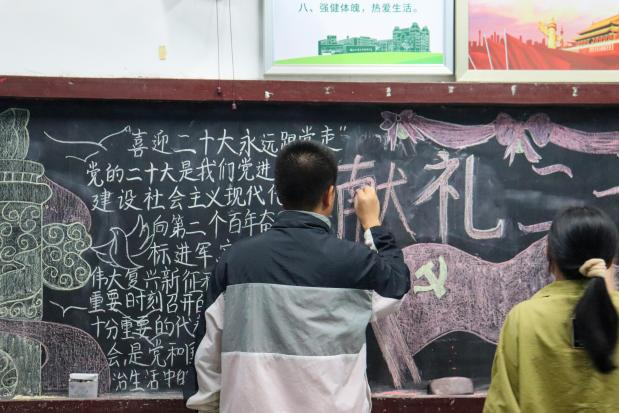 八、强健体魄，热爱生活。
喜迎二十大永远跟党走"
党的二十大是我们党进
建设社会主义现代化
向第二个百年奋
标进军
伟大复兴新征
重要时刻召开
十分重要的代
会,是党和国
治生活中的
献礼二